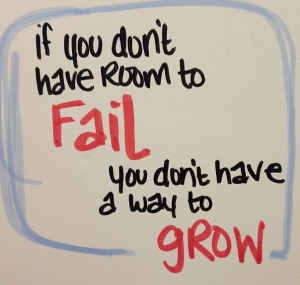 if you don't
have ROOM to
FaiL
you don't have
a way to
gROW